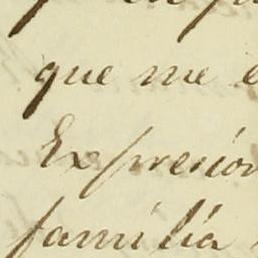 que me
Expresion
familia